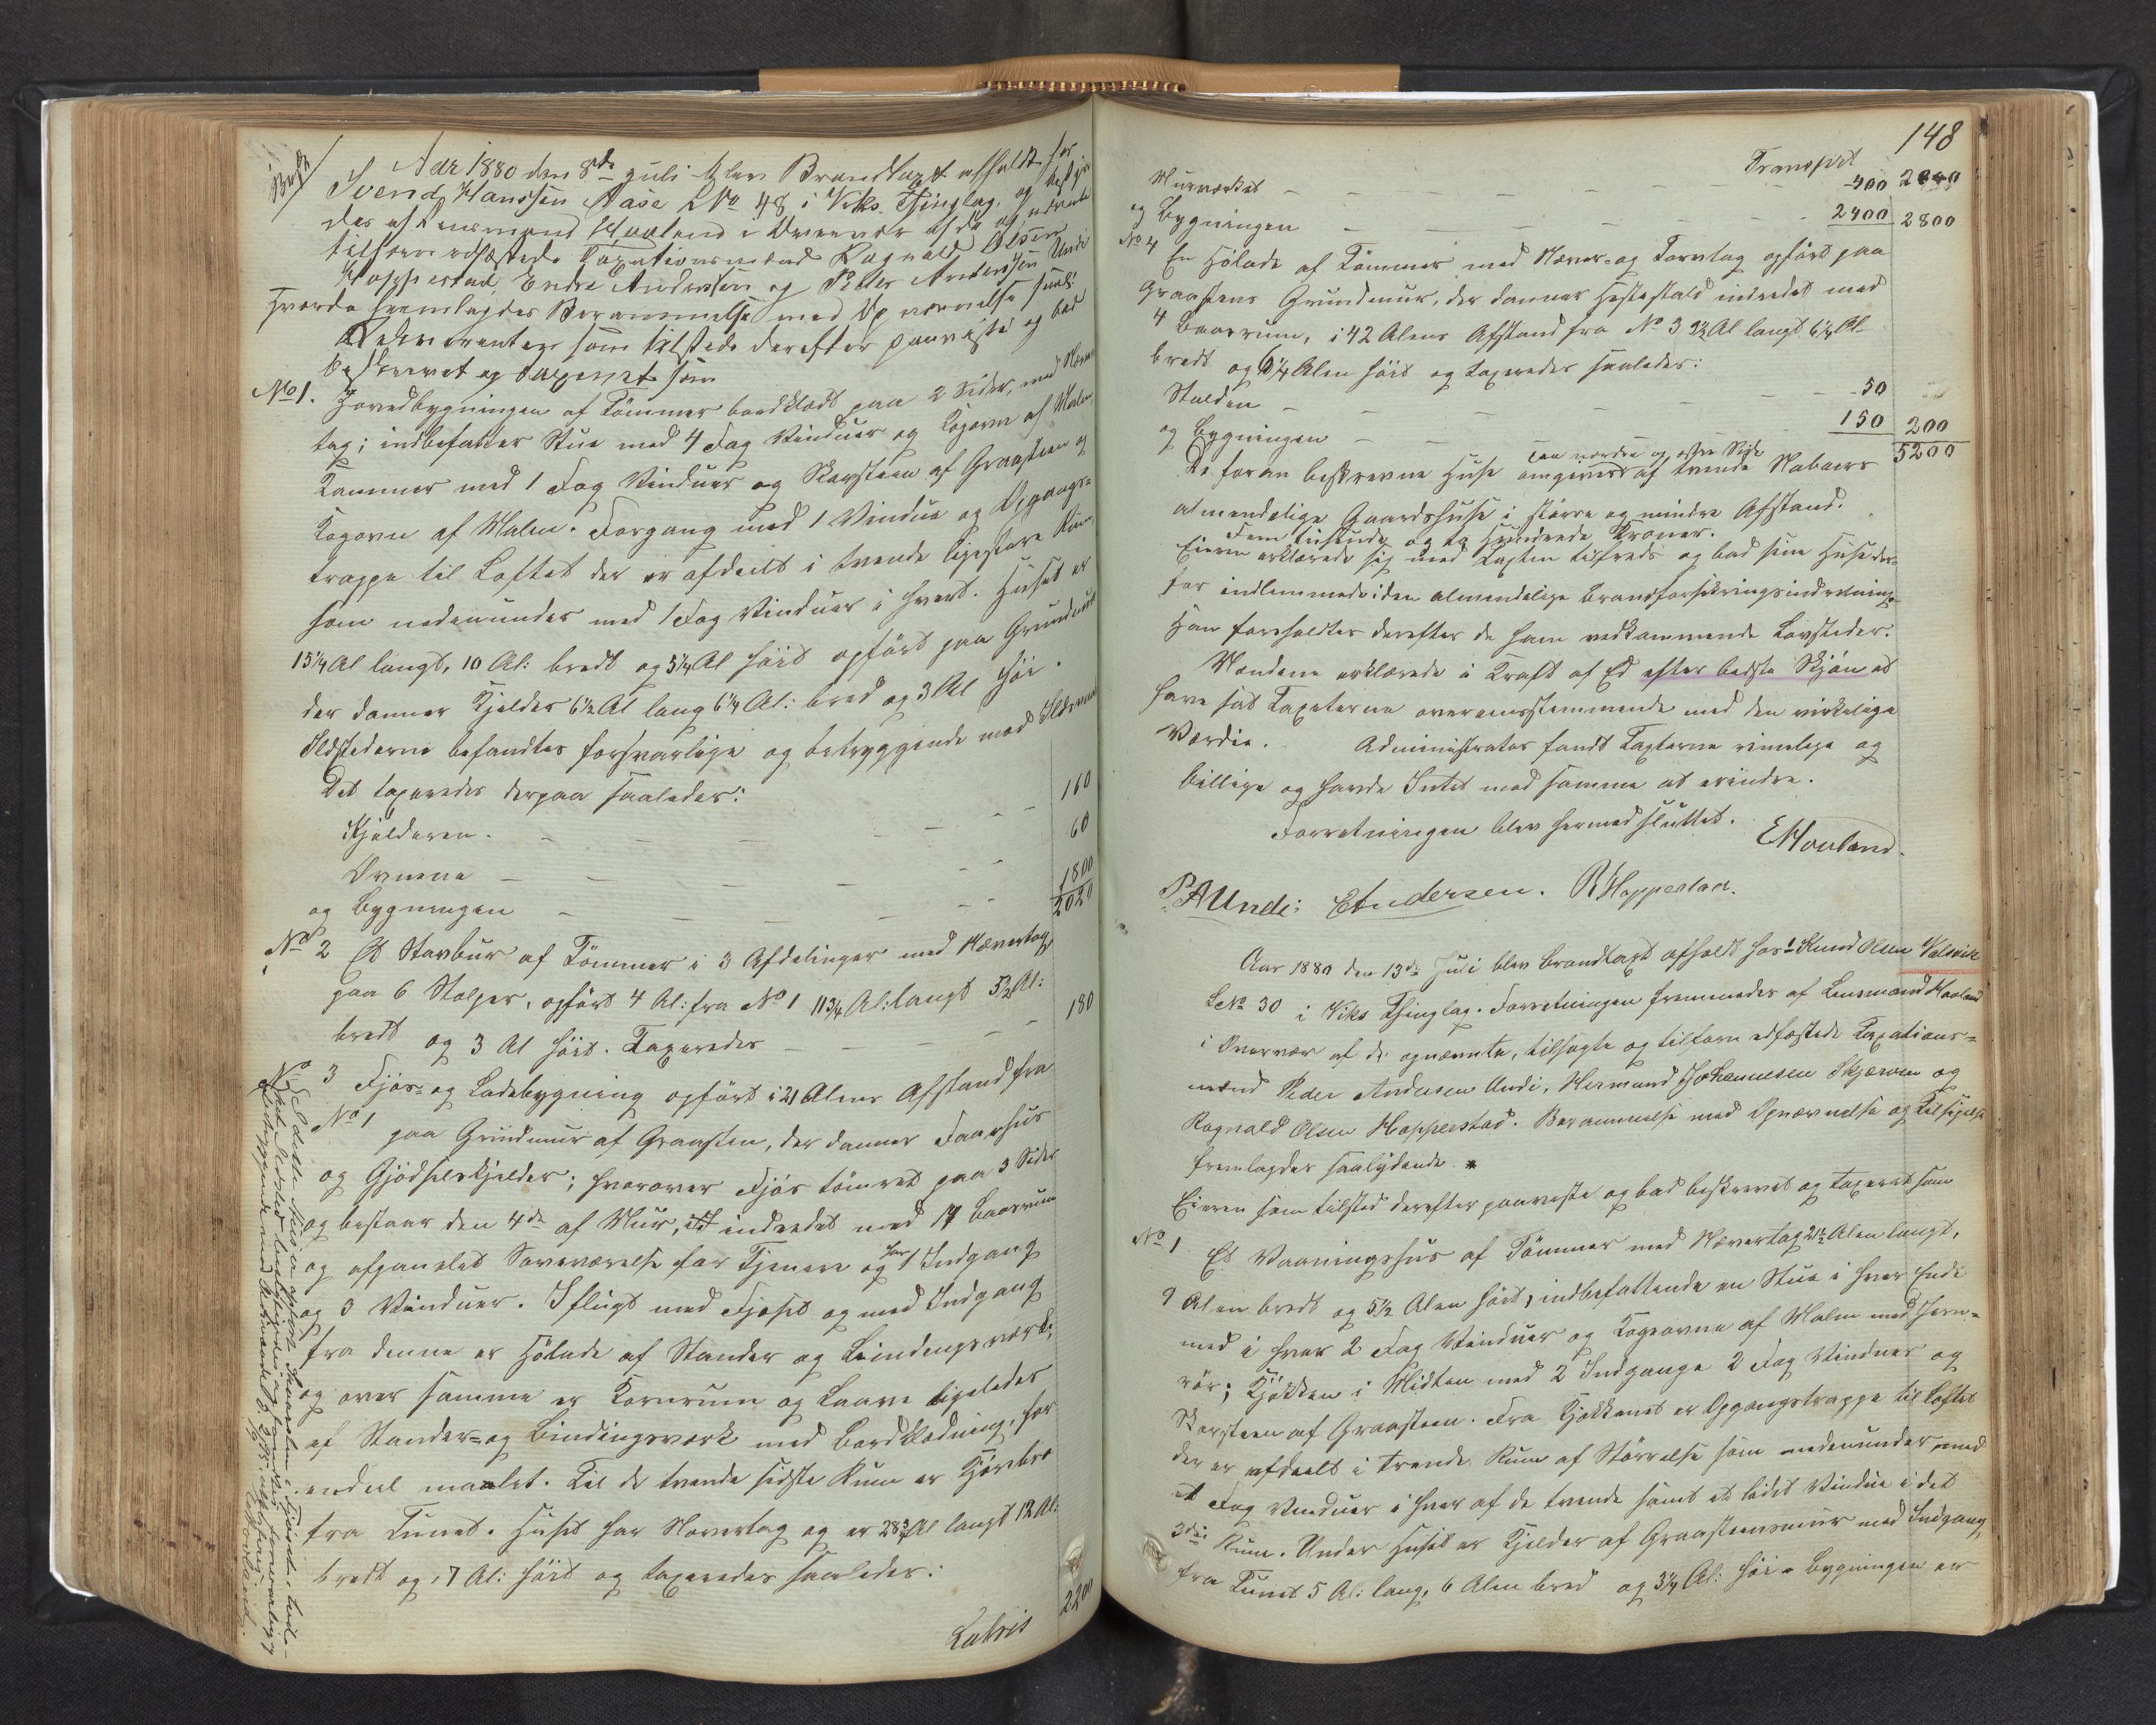 Aar 1880 den 8de Juli blev Brandtaxt afholdt hos
Svend Hanssen Aase LNo 48 i Viks Thinglag, og bestyr
des af Lensmand Hovland i Overvær af de opnævnte
tilforn edfæstede Taxationsmænd Ragnald Olsen
Hopperstad, Endre Andersen og Peder Anderssen Undi
Hvorda fremlagdes Berammelse med Opnævnelse saal:
Rekvirenten som tilstede derefter paaviste og bad
beskrevet og taxeret som
No 1. Hovedbygningen af Tømmer bordklædt paa 2 Sider, med Næver
tag; indbefatter Stue med 4 Fag Vinduer og Kogovn af Malm,
Kammer med 1 Fag Vinduer og Skorsteen af Graasteen og
Kogovn af Malm. Forgang med 1 Vindue og Opgangs-
trappe til Loftet der er afdeilt i tvende ligestore Rum,
som nedenunder med 1 Fag Vinduer i hvert. Huset er
15 1/4 Al langt, 10 Al: bredt og 5 1/4 Al høit opført paa Grundmur
der danner Kjelder 6 1/2 Al lang 6 1/4 Al: bred og 3 Al høi.
Ildstederne befandtes forsvarlige og betryggende mod Ildsvaade
Det taxeredes derpaa saaledes:
Kjelderen - 160
Ovnene - 60
og Bygningen - 1800
2020
No 2 Et Stavbur af Tømmer i 3 Afdelinger med Nævertag
paa 6 Stolper, opført 4 Al: fra No 1 11 3/4 Al: langt 5 1/2 Al:
bredt og 3 Al høit. Taxeredes - 180
No 3 Fjøs- og Ladebygning opført i 21 Alens Afstand fra
No 1 paa Grundmur af Graasten, der danner Faarhus
og Gjødselskjelder; hvorover Fjøs tømret paa 3 Sider
og bestaar den 4de af Mur, indredet med 17 Baasrum
og afpanelet Soveværelse for Tjenere og har 1 Indgang
og 3 Vinduer. I flugt med Fjøset og med Indgang
fra denne er Hølade af Stander og Bindingsværk;
og over samme er Kornrum og Laave ligeledes
af Stander- og Bindingsværk med Bordklædning, for
endeel maalet. Til de tvende sidste Rum er Kjørebro
fra Tunet. Huset har Nævertag og er 28 3/4 Al langt 12 Al:
bredt og 7 Al: høit og taxeredes saaledes:
Latris 2200
148
Transport 2200
Murværket - 400
og Bygningen - 2400 2800
No 4 En Hølade af Tømmer med Næver- og Torvtag opført paa
Graastens Grundmur, der danner Hestestald indredet med
4 Baasrum, i 42 Alens Afstand fra No 3 9 1/2 Al langt 6 1/4 Al
bredt og 6 1/4 Alen høit og taxeredes saaledes:
Stalden - 50
og Bygningen - 150 200
5200
paa nordre og østre Side
De foran beskrevne Huse omgives af tvende Naboers
almindelige Gaardshuse i større og mindre Afstand.
Fem tusinde og to Hundrede Kroner.
Eieren erklærede sig med Taxten tilfreds og bad sine Huse der-
for indlemmede i den almindelige Brandforsikringsindretning.
Han foreholdtes derefter de ham vedkommende Lovsteder.
Mændene erklærede i Kraft af Ed efter bedste Skjøn at
have sat Taxeterne overensstemmende med den virkelige
Værdie. Administrator fandt Taxterne rimelige og
billige og havde Intet mod samme at erindre.
Forretningen blev hermed sluttet.
E Hovland.
P A Undi: E Andersen. R Hopperstad.
Aar 1880 den 13de Juli blev Brandtaxt afholdt hos Knud Olsen Valsvik
LNo 30 i Viks Thinglag. Forretningen fremmedes af Lensmand Hovland
i Overvær af de opnævnte, tilsagte og tilforn edfæstede Taxations-
mænd Peder Andersen Undi, Hermund Johannesen Skjærven og
Ragnald Olsen Hopperstad. Berammelse med Opnævnelse og Tilsigelse
fremlagdes saalydende
Eieren som tilsted derefter paaviste og bad beskrevet og taxeret som
No 1 Et Vaaningshus af Tømmer med Nævertag 21 1/2 Alen langt,
9 Alen bredt og 5 1/2 Alen høit, indbefattende en Stue i hver Ende
med i hver 2 Fag Vinduer og Kogeovne af Malm med Jern-
rør; Kjøkken i Midten med 2 Indgange 2 Fag Vinduer og
Skorsteen af Graasteen. Fra Kjøkkenet er Opgangstrappe til Loftet
der er afdeelt i trende Rum af Størrelse som nedenunder med
et Fag Vinduer i hver af de tvende samt et lidet Vindue i det
3die Rum. Under Huset er Kjelder af Graasteensmur med Indgang
fra Tunet 5 Al: lang, 6 Alen bred og 3 1/4 Al: høi. Bygningen er